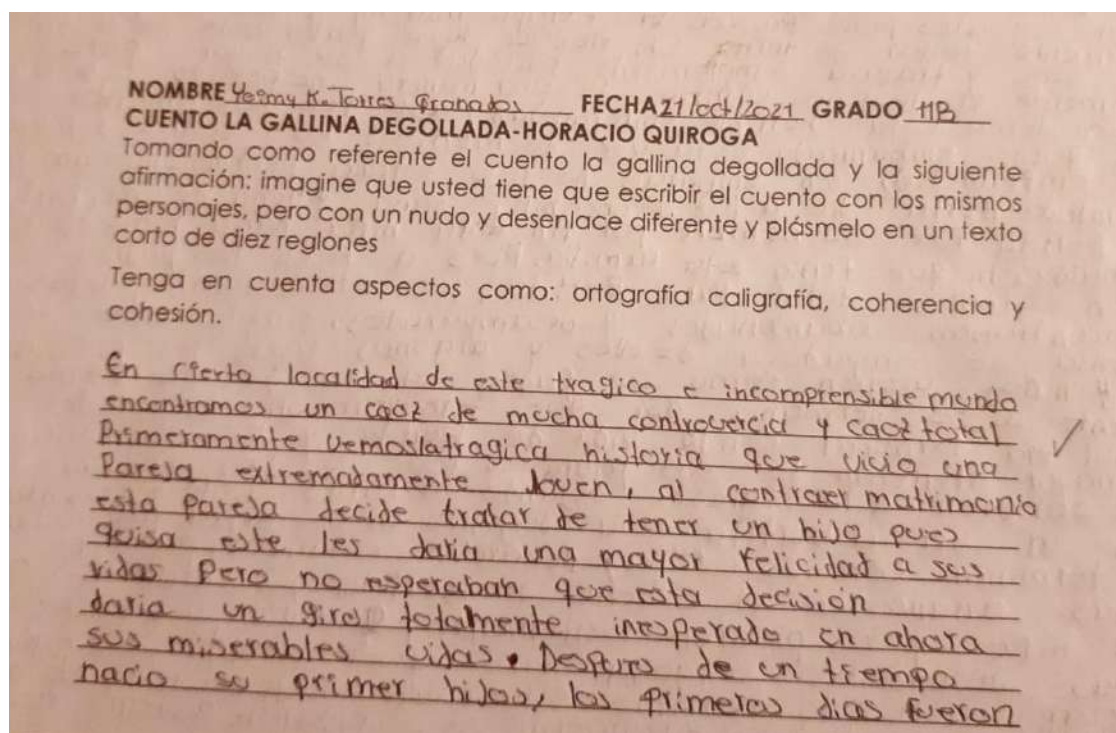 NOMBRE Yeimy K. Torres Granados FECHA 21/oct/2021 GRADO 11B
CUENTO LA GALLINA DEGOLLADA-HORACIO QUIROGA
Tomando como referente el cuento la gallina degollada y la siguiente
afirmación: imagine que usted tiene que escribir el cuento con los mismos
personajes, pero con un nudo y desenlace diferente y plásmelo en un texto
corto de diez reglones
Tenga en cuenta aspectos como: ortografía caligrafía, coherencia y
cohesión.
En cierta localidad de este tragico e incomprensible mundo
encontramos un caoz de mucha controvercia y caoz total
Primeramente vemos la tragica historia que vivio una
Pareja extremadamente Joven, al contraer matrimonio
esta Pareja decide tratar de tener un hijo pues
quisa este les daria una mayor felicidad a sus
vidas Pero no esperaban que esta decisión
daria un giro totalmente inesperado en ahora
sus miserables vidas. Despues de un tiempo
nacio su primer hijos, los primeros dias fueron